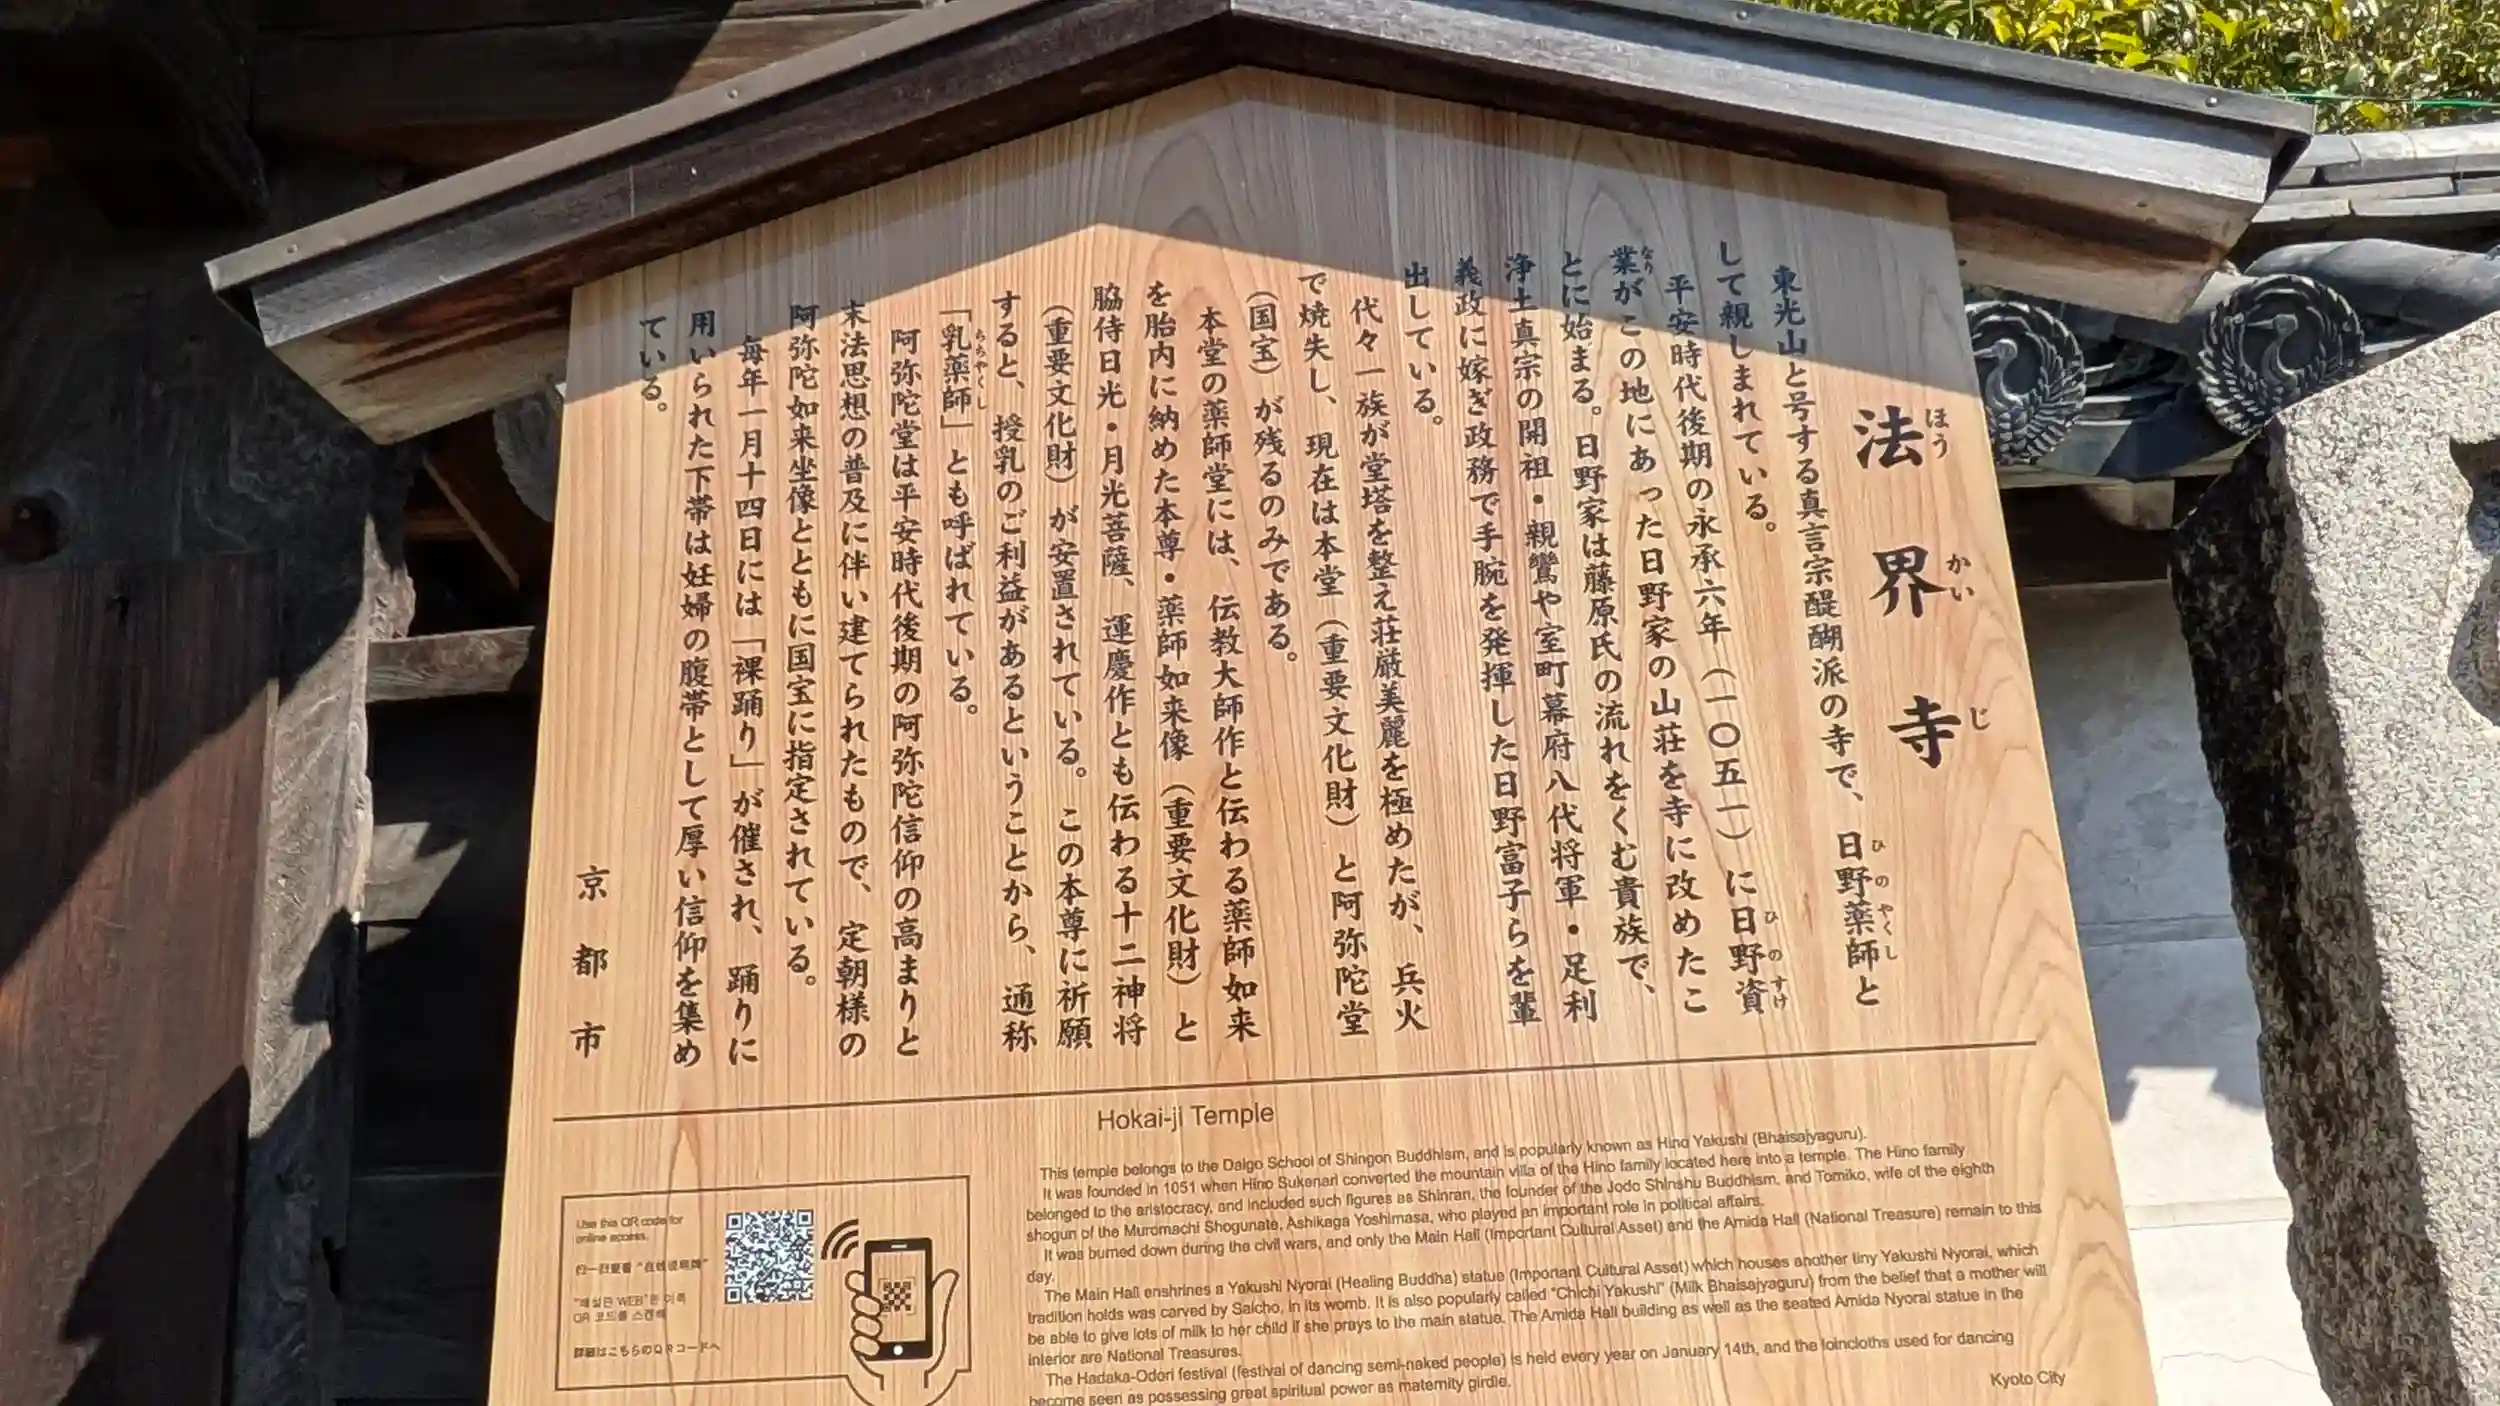 法界寺
ほうかいじ
東光山と号する真言宗醍醐派の寺で、日野薬師と
ひのやくし
して親しまれている。
平安時代後期の永承六年(一〇五一)に日野資
ひのすけ
業がこの地にあった日野家の山荘を寺に改めたこ
なり
とに始まる。日野家は藤原氏の流れをくむ貴族で、
浄土真宗の開祖・親鸞や室町幕府八代将軍・足利
義政に嫁ぎ政務で手腕を発揮した日野富子らを輩
出している。
代々一族が堂塔を整え荘厳美麗を極めたが、兵火
で焼失し、現在は本堂(重要文化財)と阿弥陀堂
(国宝)が残るのみである。
本堂の薬師堂には、伝教大師作と伝わる薬師如来
を胎内に納めた本尊・薬師如来像(重要文化財)と
脇侍日光・月光菩薩、運慶作とも伝わる十二神将
(重要文化財)が安置されている。この本尊に祈願
すると、授乳のご利益があるということから、通称
「乳薬師」とも呼ばれている。
ちちやくし
阿弥陀堂は平安時代後期の阿弥陀信仰の高まりと
末法思想の普及に伴い建てられたもので、定朝様の
阿弥陀如来坐像とともに国宝に指定されている。
毎年一月十四日には「裸踊り」が催され、踊りに
用いられた下帯は妊婦の腹帯として厚い信仰を集め
ている。
京都市
Hokai-ji Temple
This temple belongs to the Daigo School of Shingon Buddhism, and is popularly known as Hino Yakushi (Bhaisajyaguru).
It was founded in 1051 when Hino Sukenari converted the mountain villa of the Hino family located here into a temple. The Hino family
belonged to the aristocracy, and included such figures as Shinran, the founder of the Jodo Shinshu Buddhism, and Tomiko, wife of the eighth
shogun of the Muromachi Shogunate, Ashikaga Yoshimasa, who played an important role in political affairs.
It was burned down during the civil wars, and only the Main Hall (Important Cultural Asset) and the Amida Hall (National Treasure) remain to this
day.
The Main Hall enshrines a Yakushi Nyorai (Healing Buddha) statue (Important Cultural Asset) which houses another tiny Yakushi Nyorai, which
tradition holds was carved by Saicho, in its womb. It is also popularly called "Chichi Yakushi" (Milk Bhaisajyaguru) from the belief that a mother will
be able to give lots of milk to her child if she prays to the main statue. The Amida Hall building as well as the seated Amida Nyorai statue in the
interior are National Treasures.
The Hadaka-Odori festival (festival of dancing semi-naked people) is held every year on January 14th, and the loincloths used for dancing
become seen as possessing great spiritual power as maternity girdle.
Kyoto City
Use this QR code for
online access.
扫一扫查看"在线说明牌"
"해설판 WEB"은 이쪽
QR 코드를 스캔해
詳細はこちらのQRコードへ